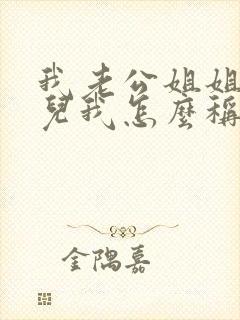 我老公姐姐
兒我怎麼稱
金隅嘉